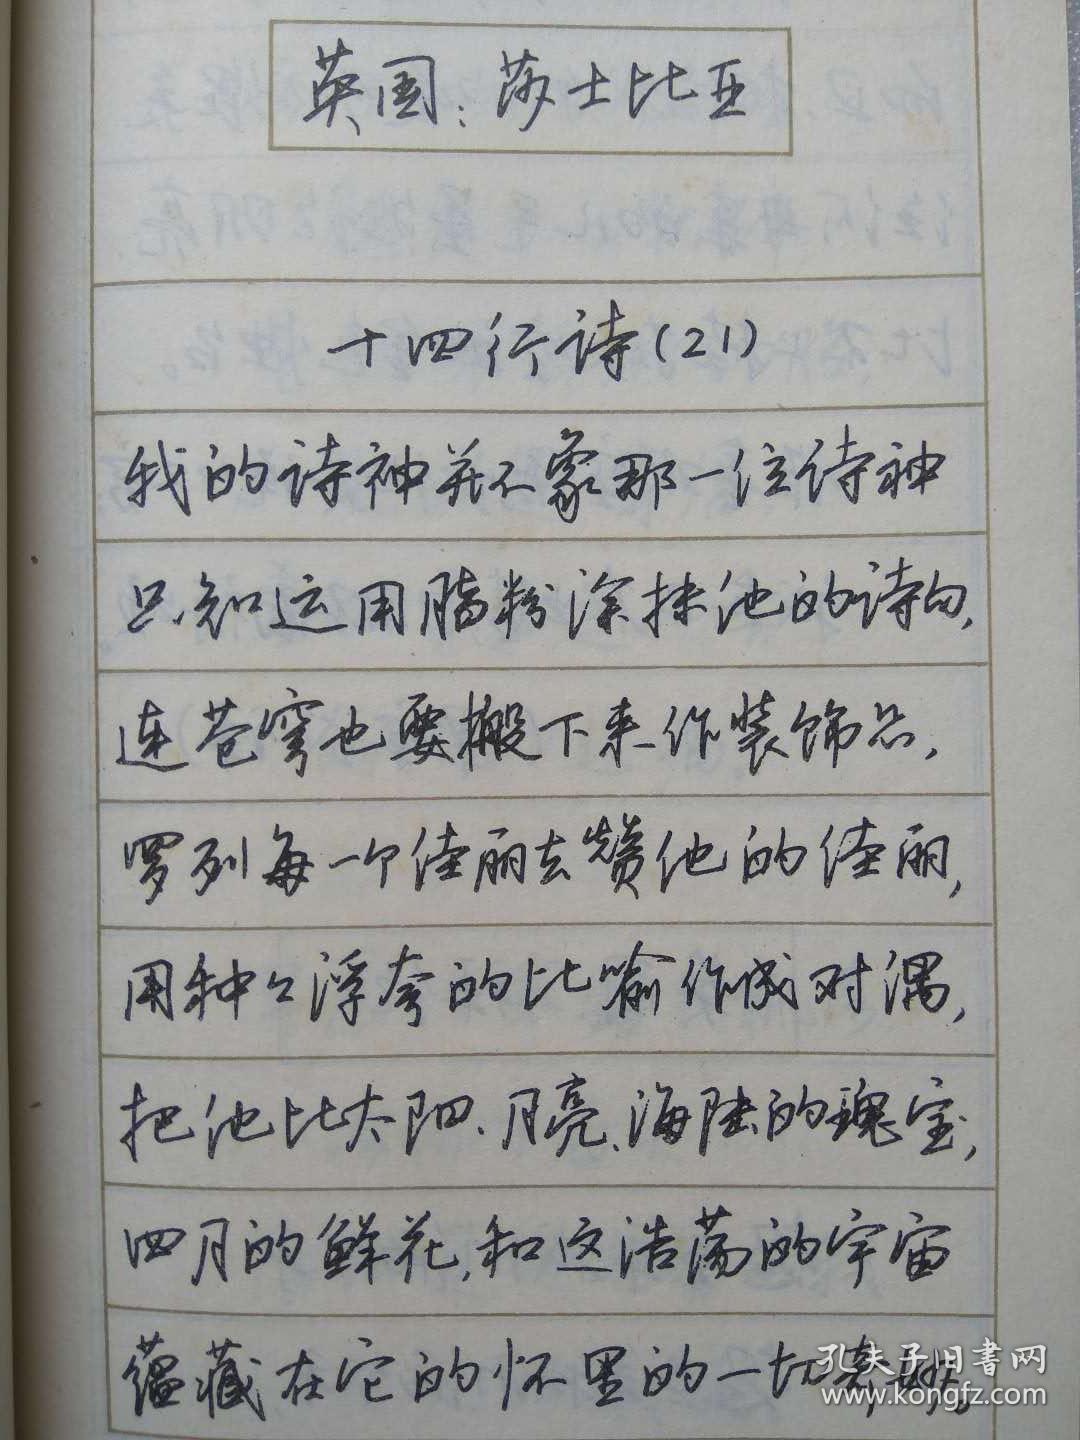 英国：莎士比亚
十四行诗(21)
我的诗神并不象那一位诗神
只知运用脂粉涂抹他的诗句，
连苍穹也要搬下来作装饰品，
罗列每一个佳丽去赞他的佳丽，
用种々浮夸的比喻作成对偶，
把他比太阳、月亮、海陆的瑰宝，
四月的鲜花，和这浩荡的宇宙
蕴藏在它的怀里的一切奇妙。
孔夫子旧書网
www.kongfz.com